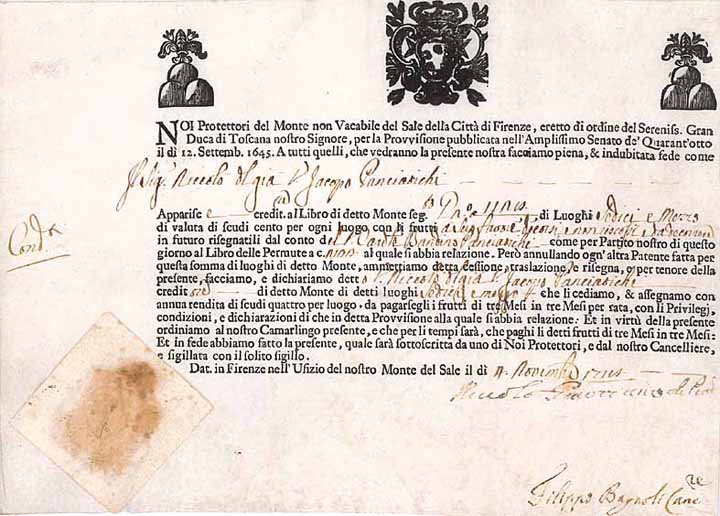 NOI Protettori del Monte non Vacabile del Sale della Città di Firenze, eretto di ordine del Sereniss. Gran
Duca di Toscana nostro Signore, per la Provvisione pubblicata nell'Amplissimo Senato de' Quarant'otto
il dì 12. Settemb. 1645. A tutti quelli, che vedranno la presente nostra facciamo piena, & indubitata fede come
Il Sig. Niccolo del già Jacopo Panciatichi
Apparisce credit. al Libro di detto Monte seg. di Luoghi dodici e Mezzo
di valuta di scudi cento per ogni luogo con li frutti
in futuro risegnatili dal conto Bandino Panciatichi come per Partito nostro di questo
giorno al Libro delle Permute a c. al quale si abbia relazione. Però annullando ogn'altra Patente fatta per
questa somma di luoghi di detto Monte, ammettiamo detta cessione, traslazione, e risegna, e per tenore della
presente, facciamo, e dichiariamo detto Niccolo del già Jacopo Panciatichi
credit di detto Monte di detti luoghi dodici e mezzo che li cediamo, & assegnamo con
annua rendita di scudi quattro per luogo, da pagarsegli i frutti di tre Mesi in tre Mesi per rata, con li Privilegj,
condizioni, e dichiarazioni di che in detta Provvisione alla quale si abbia relazione: Et in virtù della presente
ordiniamo al nostro Camarlingo presente, e che per li tempi sarà, che paghi li detti frutti di tre Mesi in tre Mesi:
Et in fede abbiamo fatto la presente, quale sarà sottoscritta da uno di Noi Protettori, e dal nostro Cancelliere,
e sigillata con il solito sigillo.
Dat. in Firenze nell'Ufizio del nostro Monte del Sale il dì 4. Novembre
Niccolo
Cond.
Filippo Bagnoli Canc.re